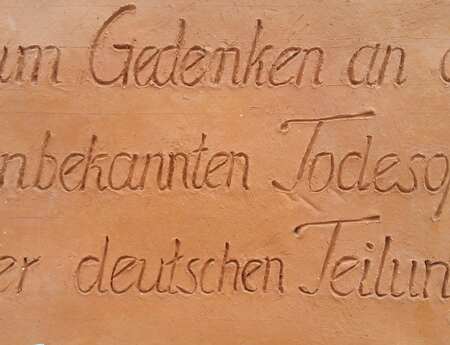 um Gedenken an d
nbekannten Todesop
er deutschen Teilun